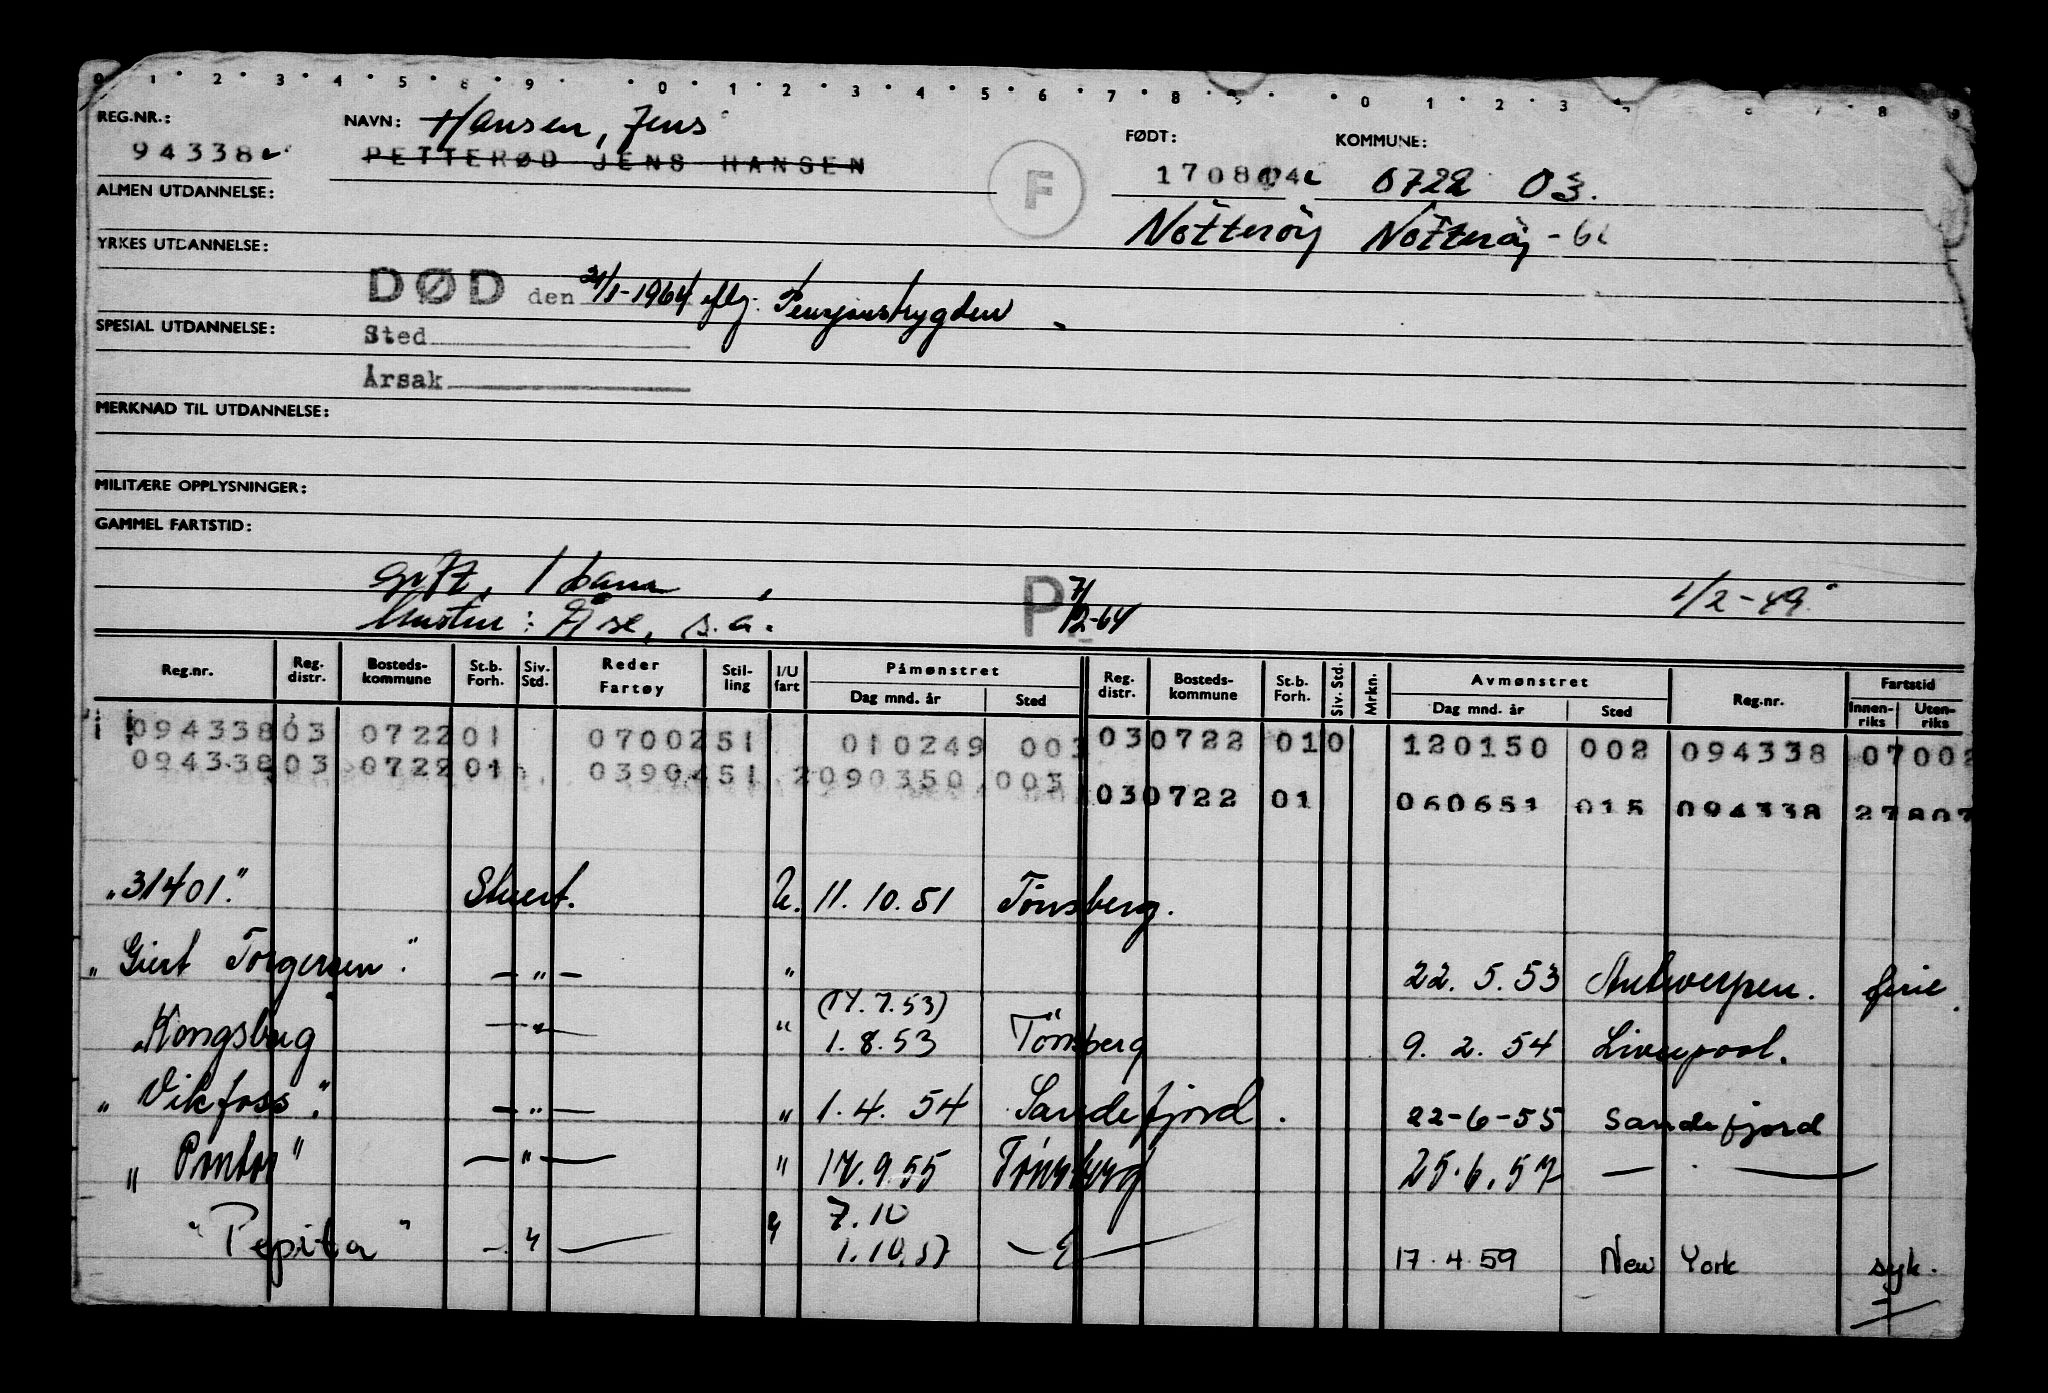 0 1 2 3 4 5 8 9 0 1 2 3 4 5 6 7 8 9 0 1 2 3 6 7 8 9
REG.NR.: NAVN: Hansen, Jens FØDT: KOMMUNE:
94338 PETTERØD JENS HANSEN F 170804 0722 03.
ALMEN UTDANNELSE:
Nøtterøy Nøtterøy -62
YRKES UTDANNELSE:
DØD den 21/1-1964 iflg. Pensjonstrygden
SPESIAL UTDANNELSE: Sted
Årsak
MERKNAD TIL UTDANNELSE:
MILITÆRE OPPLYSNINGER:
GAMMEL FARTSTID:
gift, 1 barn P 7/2-64 1/2-49
hustru: Åse, s.a.
Reg.nr. Reg. distr. Bosteds-kommune St.b. Forh. Siv. Std. Reder Fartøy Stil-ling I/U fart Påmønstret Dag mnd. år Sted Reg. distr. Bosteds-kommune St.b. Forh. Siv. Std. Mrkn. Avmønstret Dag mnd. år Sted Reg.nr. Fartstid Innen-riks Uten-riks
094338 03 0722 01 07002 51 010249 003 03 0722 01 0 120150 002 094338 07002
094338 03 0722 01 03904 51 2 090350 003
03 0722 01 060651 015 094338 27807
"31401." Stuert. U. 11.10.51 Tønsberg.
"Giert Torgersen." — " — " 22.5.53 Antwerpen. ferie.
(17.7.53)
"Kongsberg — " — " 1.8.53 Tönsberg 9.2.54 Liverpool.
"Vikfoss." — " — " 1.4.54 Sandefjord. 22-6-55 Sandefjord
"Pontos" — " — " 17.9.55 Tønsberg 25.6.57 — " —
7.10
"Pepita" — " — " 1.10.57 — " — 17.4.59 New York syk.